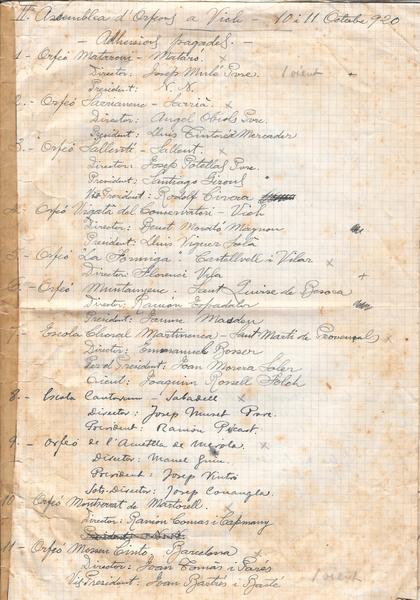 II Assemblea d'Orfeons a Vich - 10 i 11 Octubre 920
- Adhesions pagades. -
1 - Orfeó Mataroní - Mataró. x
Director: Josep Molé Pvre. 1 oient +
President: N. N.
2 - Orfeó Sarrianenc - Sarrià. x
Director: Angel Obiols Pvre.
President: Lluis Mercader
3 - Orfeó Sallentí - Sallent. x
Director: Josep Potellas Pvre.
President: Santiago Girons
Vis President: Rodolf
4 - Orfeó Vigatà del Conservatori - Vich
Director: Benet Morató Magnon
President: Lluis Viguer Solà
5 - Orfeó "La Formiga" Castellvell i Vilar x
Director Florenci Vila +
6 - Orfeó Muntanyenc. Sant Quirse de Besora x
Director: Ramon Espadaler
President: Jaume Masdeu
7 - Escola Choral Martinenca - Sant Martí de Provensals x
Director: Emmanuel Bosser
Per el President: Joan Morera Soler
Oient: Joaquim Rosell Folch
8. - Escola Cantorum - Sabadell x
Director: Josep Muset Pvre.
President: Ramon Picart.
9. - Orfeó de l'Ametlla de Merola. x
Director: Manel Guiu
President: Josep Vintró
Sots-Director: Josep Comangla.
10 - Orfeó Montserrat de Martorell. x
Director: Ramon Comas i Capmany
11 - Orfeó Mossen Cinto, Barcelona x
Director: Joan Tomàs i Parés
Vis President: Joan Bastrés i Basté 1 oient